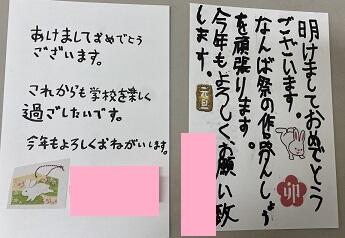 あけましておめでとう
ございます。
これからも学校を楽しく
過ごしたいです。
今年もよろしくおねがいします。
明けましておめでとう
ございます。
なんば祭の
を頑張ります。
今年もよろしくお願い致
します。
元旦
卯